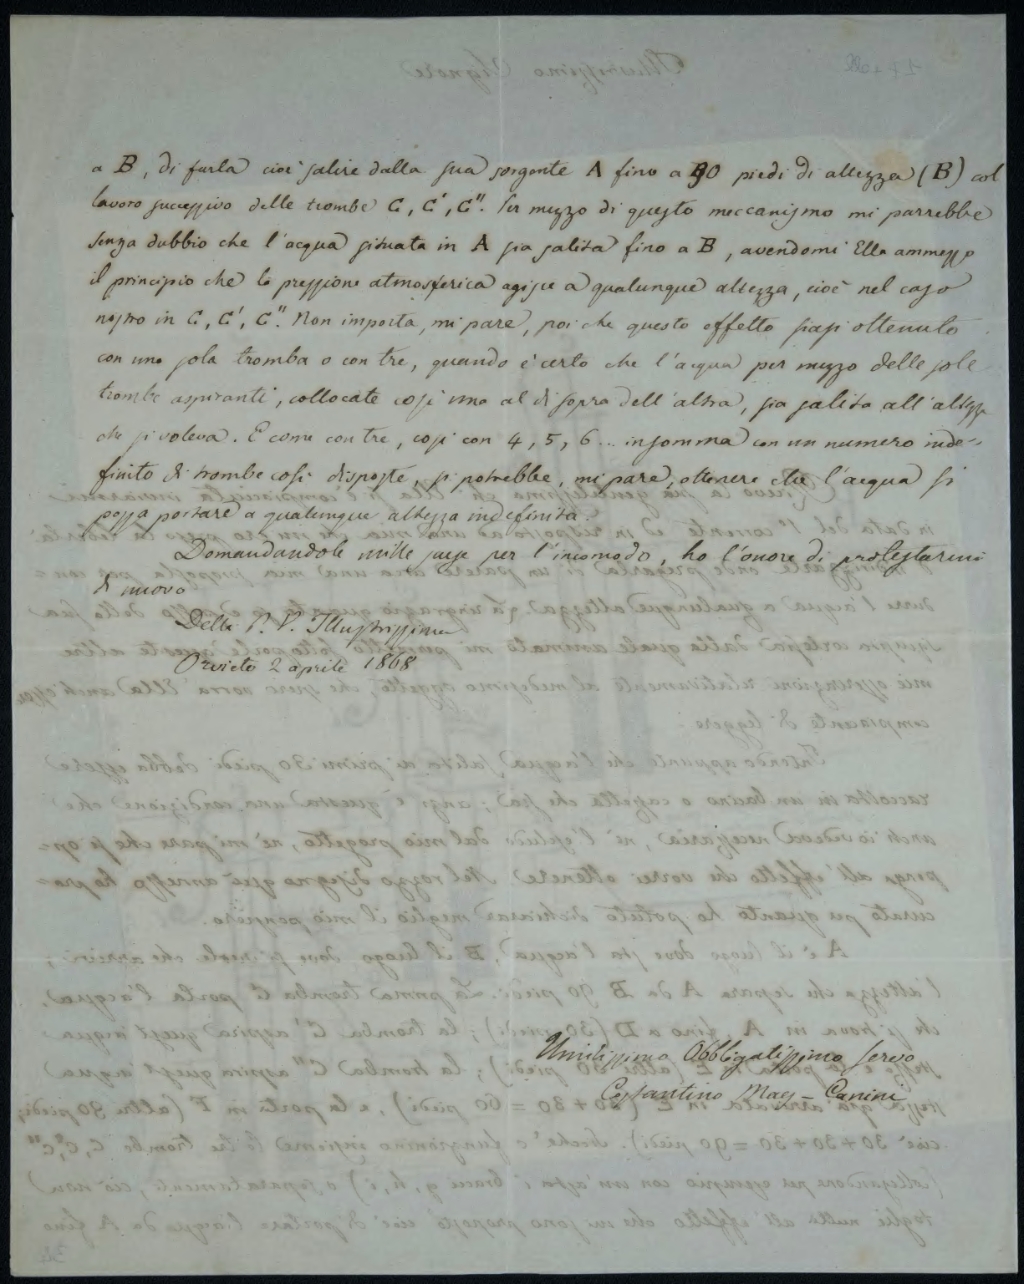 a B, di farla cioè salire dalla sua sorgente A fino a 90 piedi di altezza (B) col
lavoro successivo delle trombe C, C', C''. Per mezzo di questo meccanismo mi parrebbe
senza dubbio che l'acqua situata in A sia salita fino a B, avendomi Ella ammesso
il principio che la pressione atmosferica agisce a qualunque altezza, cioè nel caso
nostro in C, C', C''. Non importa, mi pare, poi che questo effetto siasi ottenuto
con una sola tromba o con tre, quando è certo che l'acqua per mezzo delle sole
trombe aspiranti, collocate così una al di sopra dell'altra, sia salita all'altezza
che si voleva. E come con tre, così con 4, 5, 6... insomma con un numero inde-
finito di trombe così disposte, si potrebbe, mi pare, ottenere che l'acqua si
possa portare a qualunque altezza indefinita.
Domandandole mille scuse per l'incomodo, ho l'onore di protestarmi
di nuovo
Della P. V. Illustrissima
Orvieto 2 aprile 1868
Umilissimo Obbligatissimo servo
Costantino Mag-Canini